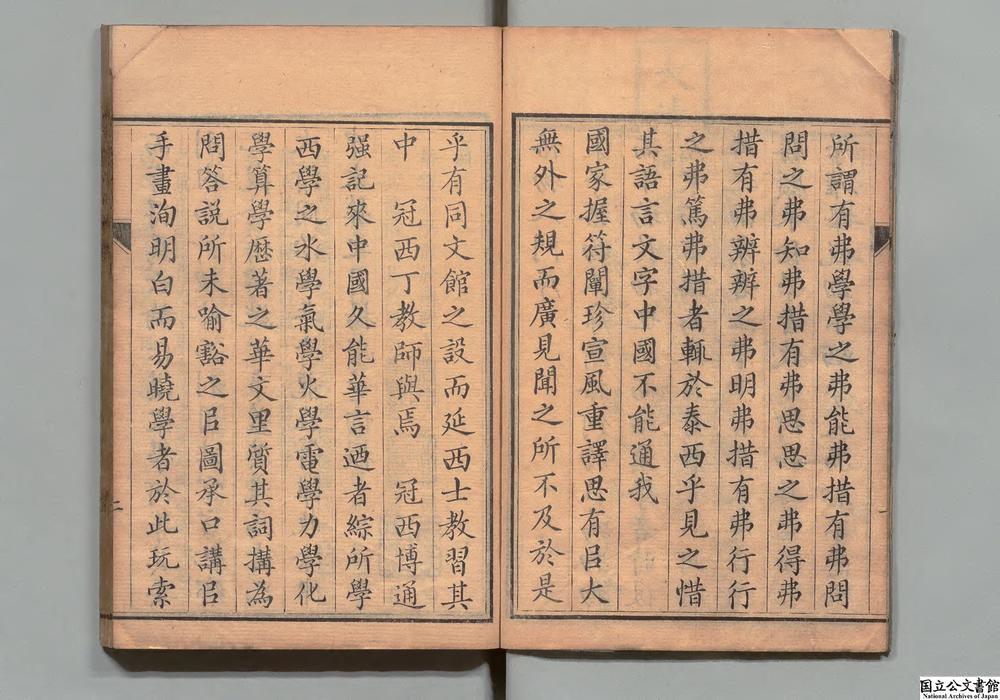 所謂有弗學學之弗能弗措有弗問
問之弗知弗措有弗思思之弗得弗
措有弗辨辨之弗明弗措有弗行行
之弗篤弗措者輒於泰西乎見之惜
其語言文字中國不能通我
國家握符闡珍宣風重譯思有㠯大
無外之規而廣見聞之所不及於是
乎有同文館之設而延西士教習其
中 冠西丁教師與焉 冠西博通
强記來中國久能華言迺者綜所學
西學之水學氣學火學電學力學化
學算學歷著之華文里質其詞搆為
問答說所未喻豁之㠯圖承口講㠯
手畫洵明白而易曉學者於此玩索
一
二
国立公文書館
National Archives of Japan